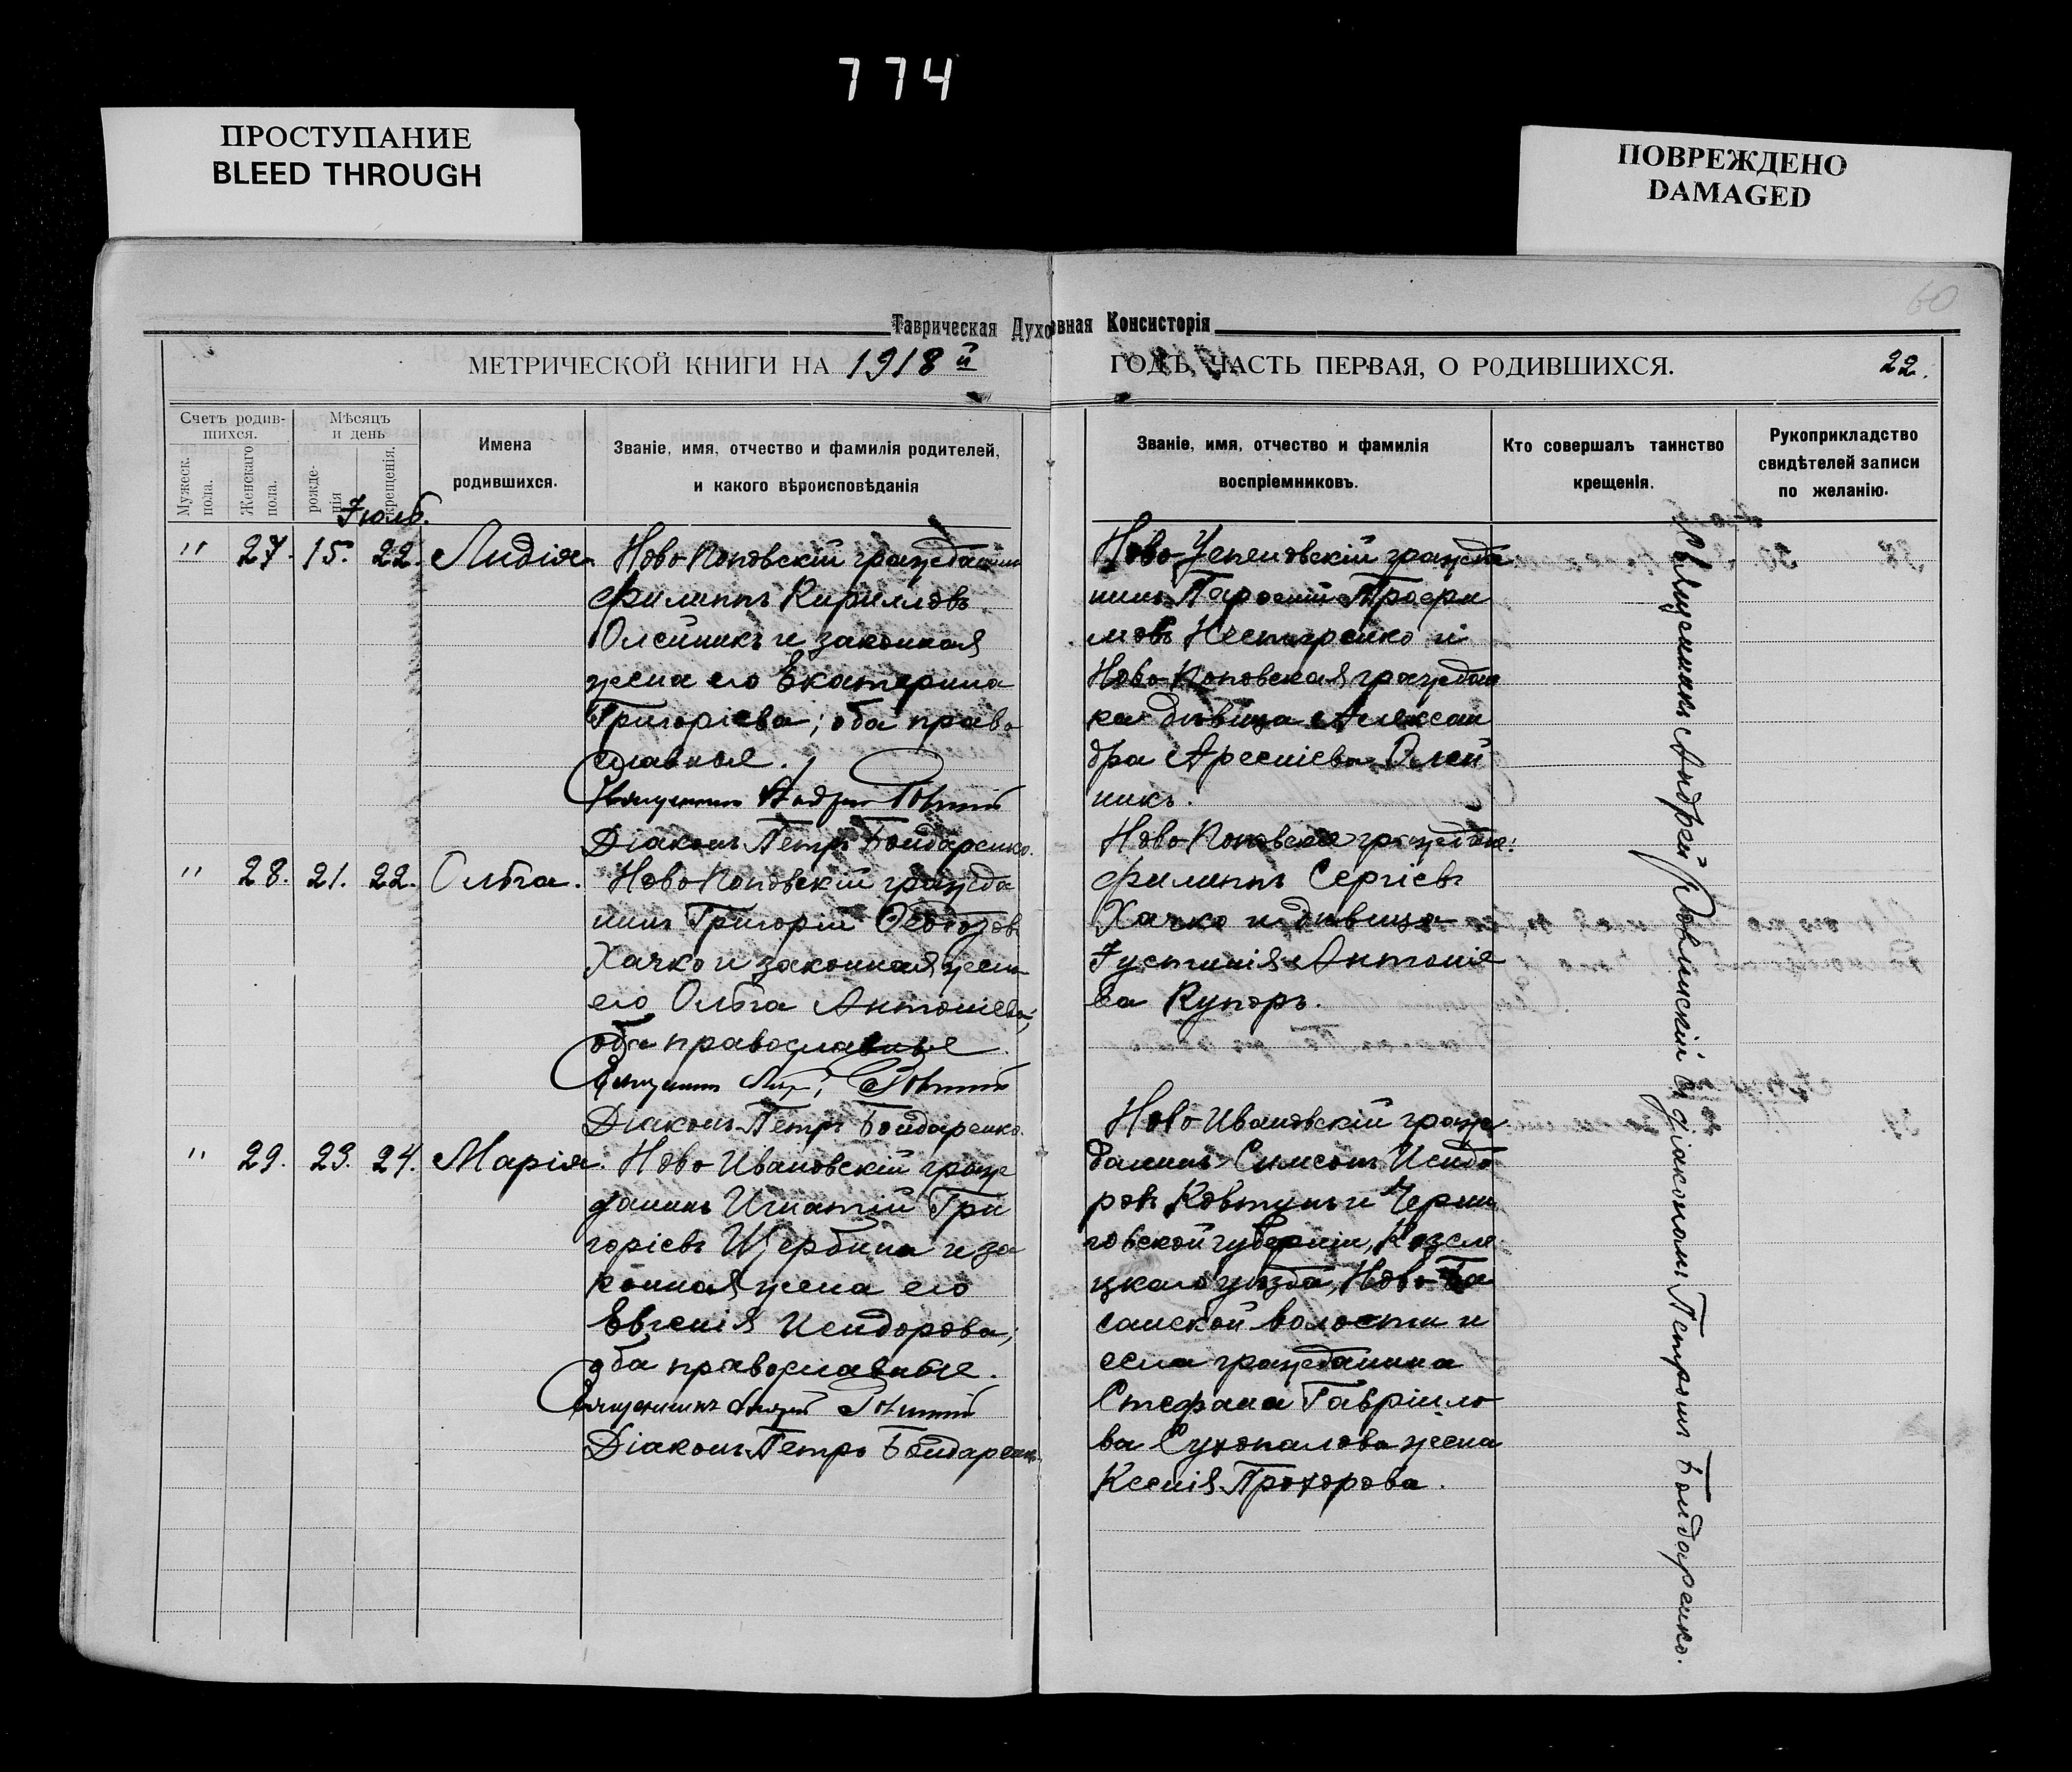 774
ПРОСТУПАНИЕ
BLEED THROUGH
ПОВРЕЖДЕНО
DAMAGED
60
Таврическая Духовная Консисторія
МЕТРИЧЕСКОЙ КНИГИ НА 1918й ГОДЪ, ЧАСТЬ ПЕРВАЯ, О РОДИВШИХСЯ. 22.
Счетъ родив-
шихся.
Мужеск.
пола.
Женскаго
пола.
Мѣсяцъ
и день
рожде-
нія
крещенія.
Имена
родившихся.
Званіе, имя, отчество и фамилія родителей,
и какого вѣроисповѣданія
Званіе, имя, отчество и фамилія
воспріемниковъ.
Кто совершалъ таинство
крещенія.
Рукоприкладство
свидѣтелей записи
по желанію.
Іюль.
" 27. 15. 22. Лидія.
Ново Поповскій гражданинъ
Филиппъ Кирилловъ
Олейникъ и законная
жена его Екатерина
Григоріева; оба право
славные.
Священникъ Андрей
Діаконъ Петръ Бондаренко.
Ново-Успеновскій гражда
нинъ
Нестеренко и
Ново-Поповская граждан
ка дѣвица Алексан
дра Арсеніева Олей
никъ.
" 28. 21. 22. Ольга.
Ново Поповскій гражда
нинъ Григорій
Хачко и законная жена
его Ольга Антоніева;
оба православные
Священникъ
Діаконъ Петръ Бондаренко.
Ново-Поповскіе граждане:
Филиппъ Сергіевъ
Хачко и дѣвица
Іустинія Антоніе
ва Купоръ.
" 29. 23. 24. Марія.
Ново-Ивановскій граж
данинъ Игнатій Гри
горіевъ Щербина и за
конная жена его
Евгенія Исидорова;
оба православные.
Священникъ Андрей
Діаконъ Петръ Бондаренко
Ново Ивановскій граж
данинъ Симеонъ Исидо
ровъ Ковтунъ и Черни
говской губерніи, Козеле
цкаго уѣзда, Ново-Ба
санской волости и
села гражданина
Стефана Гавріило
ва Сухопалова жена
Ксенія Прохорова.
Священникъ Андрей съ діакономъ Петромъ Бондаренко.